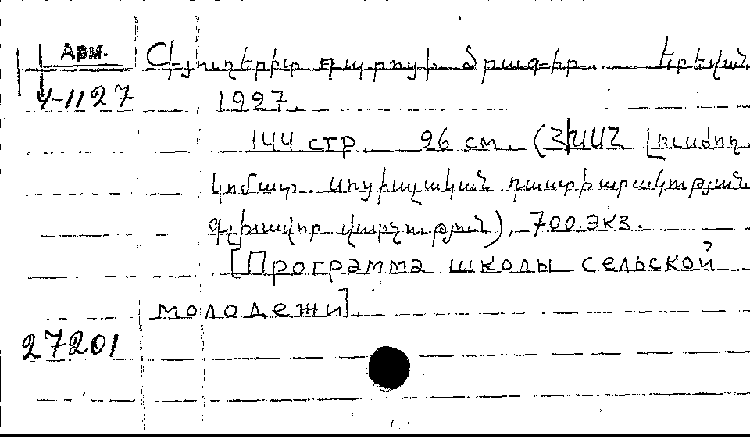 Арм. Գյուղերիտ դպրոցի ծրագիր. Երեվան
4-1127 1927.
144 стр. 26 см. (ՀԽՍՀ Լուսժող.
կոմատ. սոցիալական դաստիարակության
գլխավոր վարչություն), 700 экз.
[Программа школы сельской
молодежи]
27201